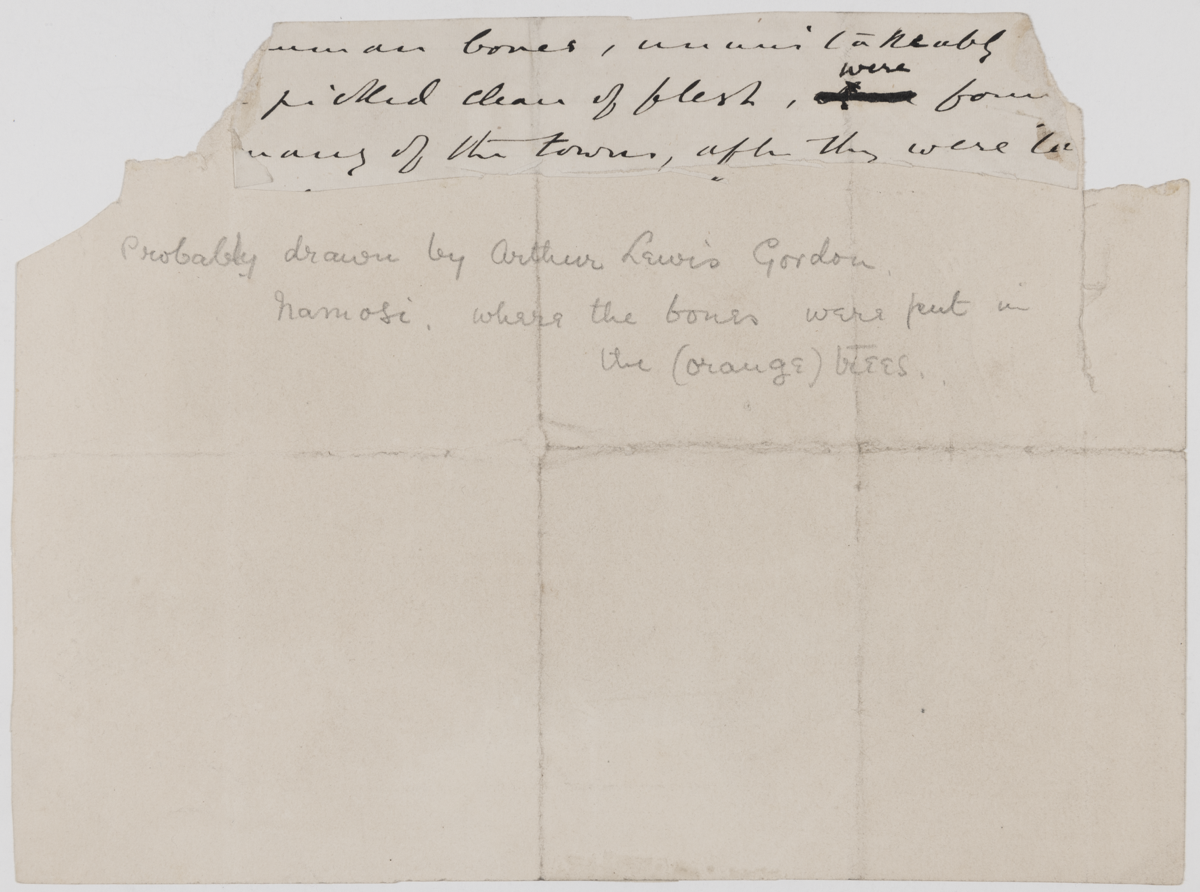 uman bones, unmistakeably
were
picked clean of flesh, foun
many of the towns, after they were ta
Probably drawn by Arthur Lewis Gordon.
Namosi. where the bones were put in
the (orange) trees.